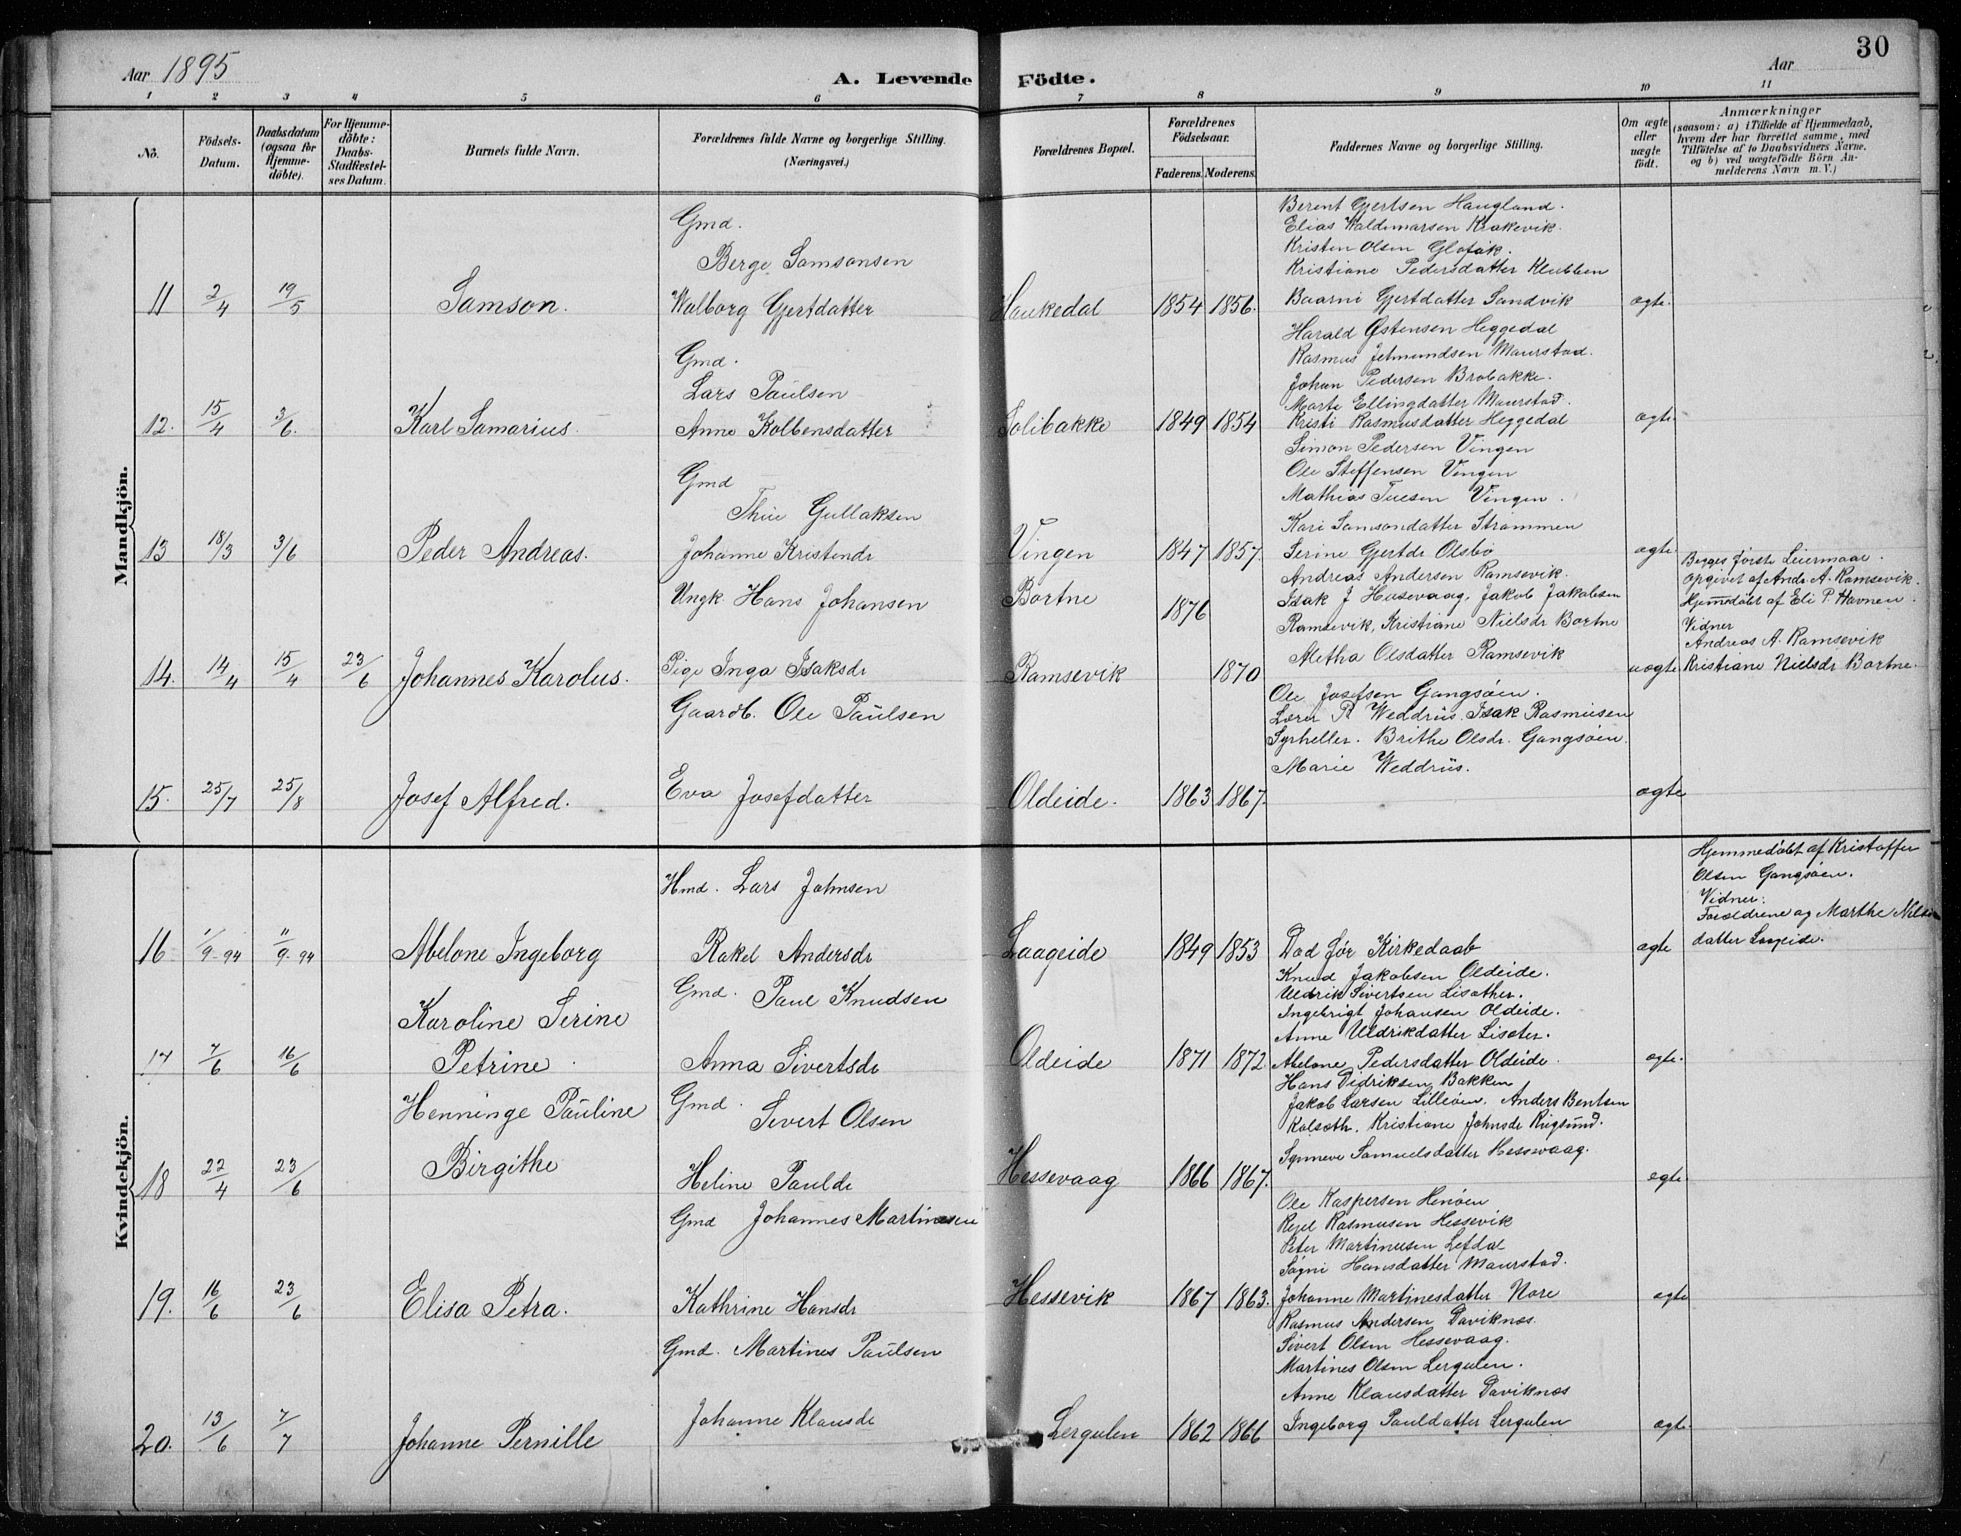 Aar 1895
A. Levende Födte.
Aar
30
1 2 3 4 5 6 7 8 9 10 11
No.
Födsels-
Datum.
Daabsdatum
(ogsaa for
Hjemme-
döbte).
For Hjemme-
döbte:
Daabs-
Stadfæstel-
ses Datum.
Barnets fulde Navn.
Forældrenes fulde Navne og borgerlige Stilling.
(Næringsvei.)
Forældrenes Bopæl.
Forældrenes
Födselsaar.
Faderens. Moderens.
Faddernes Navne og borgerlige Stilling.
Om ægte
eller
uægte
födt.
Anmærkninger
(saasom: a) i Tilfælde af Hjemmedaab,
hvem der har forrettet samme, med
Tilföielse af to Daabsvidners Navne.
og b) ved uægtefödte Börn An-
melderens Navn m. V.)
Mandkjön.
11 2/4 19/5 Samson.
Gmd.
Berge Samsonsen
Walborg Gjertdatter
Haukedal 1854 1856.
Berent Gjertsen Haugland.
Elias Waldemarsen Krakevik.
Kristen Olsen Glofak.
Kristiane Pedersdatter Klubben
Baarni Gjertdatter Sandvik
ægte.
12. 15/4 3/6. Karl Samarius.
Gmd.
Lars Paulsen
Anne Kolbensdatter
Solibakke 1849 1854
Harald Østensen Heggedal
Rasmus Jetmundsen Maurstad.
Johan Pedersen Brobakke.
Marte Ellingdatter Maurstad.
Kristi Rasmusdatter Heggedal
ægte
13 18/3 3/6 Peder Andreas.
Gmd
Thue Gullaksen
Johanne Kristendr
Vingen 1847 1857.
Simon Pedersen Vingen
Ole Steffensen Vingen
Mathias Tuesen Vingen.
Kari Samsondatter Strømmen
Serine Gjertdr Olsbø
ægte.
14. 14/4 15/4 23/6 Johannes Karolus.
Ungk. Hans Johansen
Pige Inga Isaksdr
Bortne
Ramsevik
1876
1870
Andreas Andersen Ramsevik.
Isak J Husevaag, Jakob Jakobsen
Ramsevik, Kristiane Nielsdr Bortne
Aletha Olsdatter Ramsevik
uægte
Begges første Leiermaal.
Opgivet af Andr A. Ramsevik.
Hjemedøbt af Eli P. Havnen.
Vidner
Andreas A. Ramsevik
Kristiane Nielsdr Bortne.
15. 25/7 25/8 Josef Alfred.
Gaardb. Ole Paulsen
Eva Josefdatter
Oldeide. 1863 1867.
Ole Josefsen Gangsøen.
Lærer R Weddriis. Isak Rasmusen
Syrheller. Brithe Olsdr. Gangsøen.
Marie Weddriis.
ægte
Kvindekjön.
16 1/9-94 11/9-94 Abelone Ingeborg
Hmd. Lars Johnsen
Rakel Andersdr
Laageide 1849 1853
Død før Kirkedaab
ægte
Hjemmedøbt af Kristoffer
Olsen Gangsøen.
Vidner:
Forældrene og Marthe Nils
datter Laageide.
17 7/6 16/6 Karoline Serine
Petrine
Gmd. Paul Knudsen
Anna Sivertsdr
Oldeide 1871 1872.
Knud Jakobsen Oldeide.
Uldrik Sivertsen Lisæther.
Ingebrigt Johansen Oldeide.
Anne Uldrikdatter Lisæter.
Abelone Pedersdatter Oldeide.
ægte.
18 22/4 23/6 Henninge Pauline
Birgithe
Gmd.
Sivert Olsen
Heline Paulde
Hessevaag 1866 1867.
Hans Didriksen Bakken
Jakob Larsen Lilleøen. Anders Bentsen
Kalsæth. Kristiane Johnsdr Rugsund.
Synneve Samuelsdatter Hessevaag.
egte
19. 16/6 23/6 Elisa Petra.
Gmd Johannes Martinesen
Kathrine Hansdr
Hessevik 1867 1863.
Ole Kaspersen Henøen
Rasmusen Hessevik
Peter Martinusen Lefdal
Søgni Hansdatter Maurstad.
Johanne Martinesdatter Nore
ægte
20. 13/6 7/7 Johanne Pernille
Gmd. Martines Paulsen
Johanne Klausdr
Lergulen 1862 1866
Rasmus Andersen Daviknæs.
Sivert Olsen Hessevaag.
Martines Olsen Lergulen.
Anne Klausdatter Daviknæs
Ingeborg Pauldatter Lergulen
ægte.